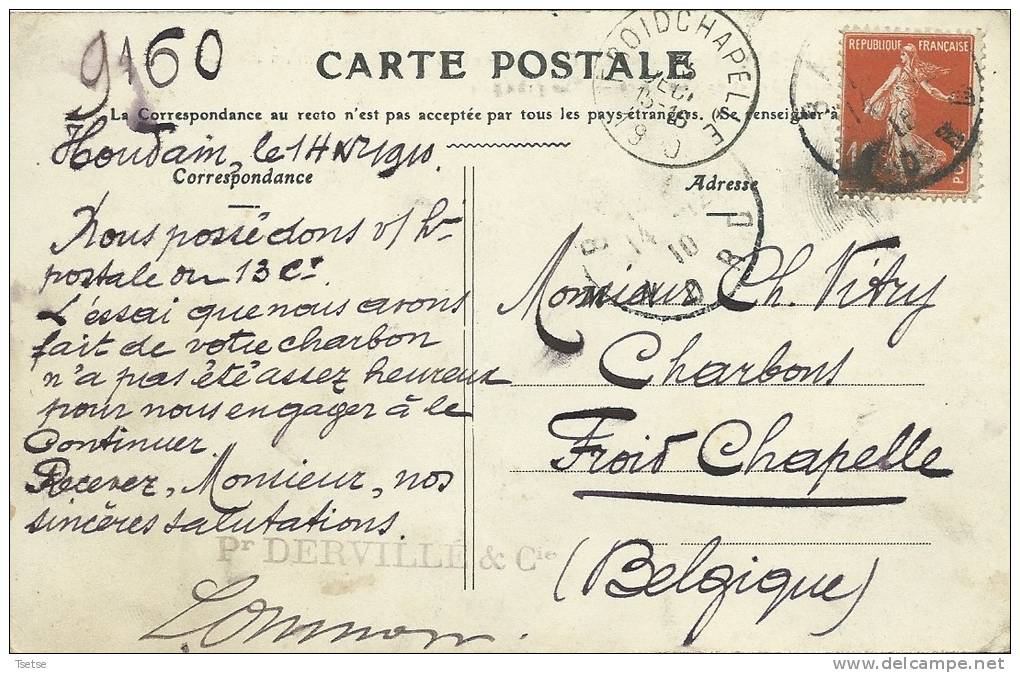 9460
CARTE POSTALE
La Correspondance au recto n'est pas acceptée par tous les pays étrangers. (Se renseigner à
Houdain, le 14 1910
Correspondance
Adresse
Nous possédons v/
postale du 13 Ct
L'éssai que nous avons
fait de votre charbon
n'a pas été assez heureux
pour nous engager à le
Continuer.
Recevez, Monsieur, nos
sincères salutations.
Pr DERVILLÉ & Cie
Monsieur Ch. Vitry
Charbons
Froid Chapelle
(Belgique)
FROIDCHAPELLE
15-16
REPUBLIQUE FRANÇAISE
10
BAVAY
14 -12
10
NORD
Tsetse
delcampe.net